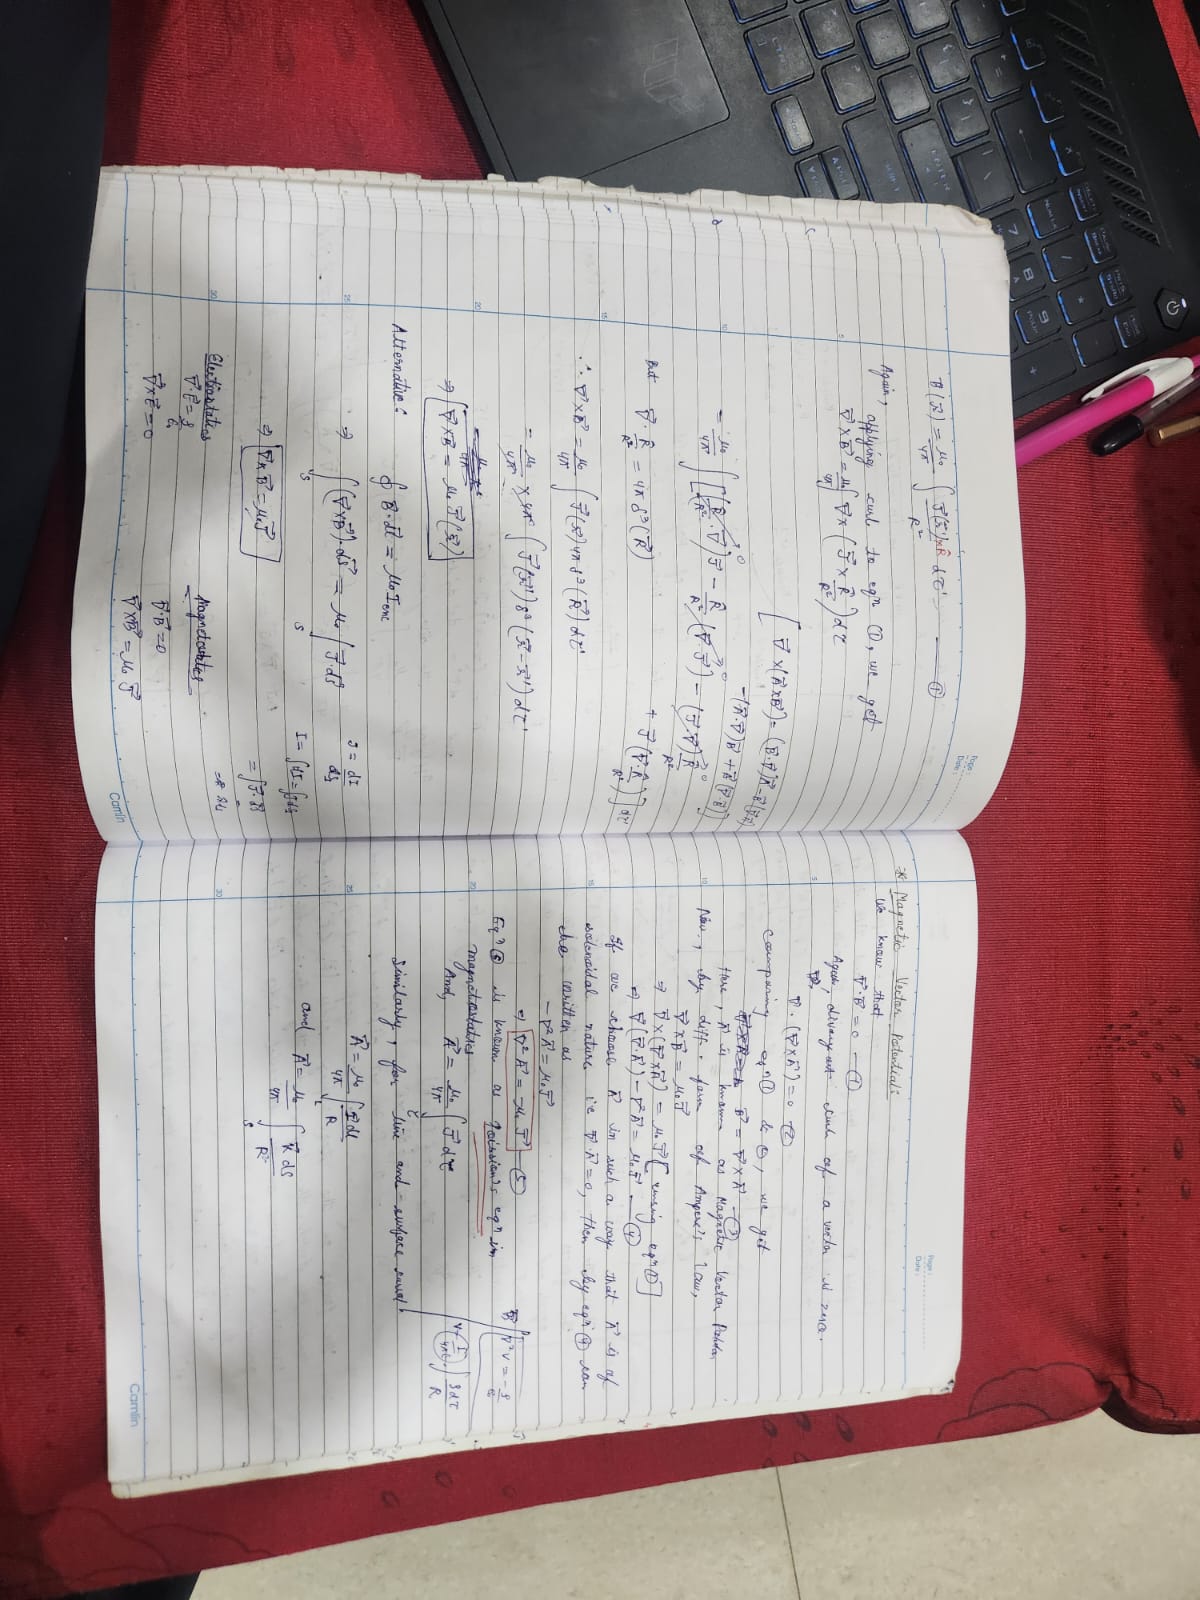 Page:
Date:
B(r) = μ₀/4π ∫ J(r')×R̂/R² dτ' ——— ①
Again, applying curl to eqn ①, we get
∇×B = μ₀/4π ∫ ∇×(J×R̂/R²)dτ
[∇×(A×B) = (B·∇)A - B(∇·A)
-(A·∇)B + A(∇·B)]
= μ₀/4π ∫[(R̂/R²·∇)J - R̂/R²(∇·J) - (J·∇)R̂/R²
+ J(∇·R̂/R²)]dτ'
But ∇·R̂/R² = 4πδ³(R)
∴ ∇×B = μ₀/4π ∫J(r')4πδ³(R)dτ'
= μ₀/4π × 4π ∫J(r')δ³(r-r')dτ'
⇒ ∇×B = μ₀ J(r)
Alternative:
∮B·dl = μ₀ Ienc
⇒ ∫s(∇×B)·ds = μ₀ ∫s J·ds
J = dI/ds
I = ∫dI = ∫Jds
= ∫J·ds
⇒ ∇×B = μ₀J
Electrostatics
∇·E = ρ/ε₀
∇×E = 0
Magnetostatics
∇·B = 0
∇×B = μ₀J
Camlin
Page:
Date:
* Magnetic Vector Potential:
We know that
∇·B = 0 —①
Again, divergent curl of a vector is zero.
∇·(∇×A) = 0 ②
Comparing eqn ① & ②, we get
B = ∇×A —③
Here, A is known as Magnetic Vector
Now, by diff. form of Ampere's law,
∇×B = μ₀J
⇒ ∇×(∇×A) = μ₀J [using eqn ①]
⇒ ∇(∇·A) - ∇²A = μ₀J ——④
If we choose A in such a way that A is of
solenoidal nature ie ∇·A = 0, then by eqn ④ can
be written as
-∇²A = μ₀J
⇒ ∇²A = -μ₀J —⑤
Eqn ⑤ is known as Poission's eqn in
magnetostatics
∇²V = -ρ/ε₀
And, A = μ₀/4π ∫ J dτ
∫ρdτ/R
Similarly, for line and surface
A = μ₀/4π ∫ I dl/R
and A = μ₀/4π ∫s K ds/R
Camlin